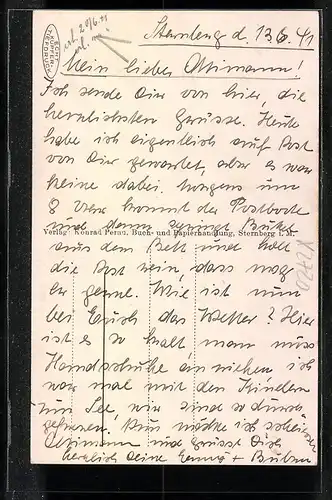 ECHT KUPFER-TIEFDRUCK
erh. 20/6.41
Sternberg d. 13.6.41
Mein lieber Attimann!
Ich sende Dir von hier, die
herzlichsten Grüsse. Heute
habe ich eigentlich auf Post
von Dir gewartet, aber es war
keine dabei. Morgens um
8 Uhr kommt der Postbote
und dann springt Buben
Verlag: Konrad Peran, Buch- und Papierhandlung, Sternberg i. M.
aus dem Bett und holt
die Post rein, dass mag
er gerne. Wie ist nun
bei Euch das Wetter? Hier
ist es so kalt, man muss
Handschuhe anziehen ich
war mal mit den Kindern
zum See, wir sind so durch
gefroren. Nun möchte ich schliessen
Attimann und grüsst Dich
herzlich Deine + Buben
K2725